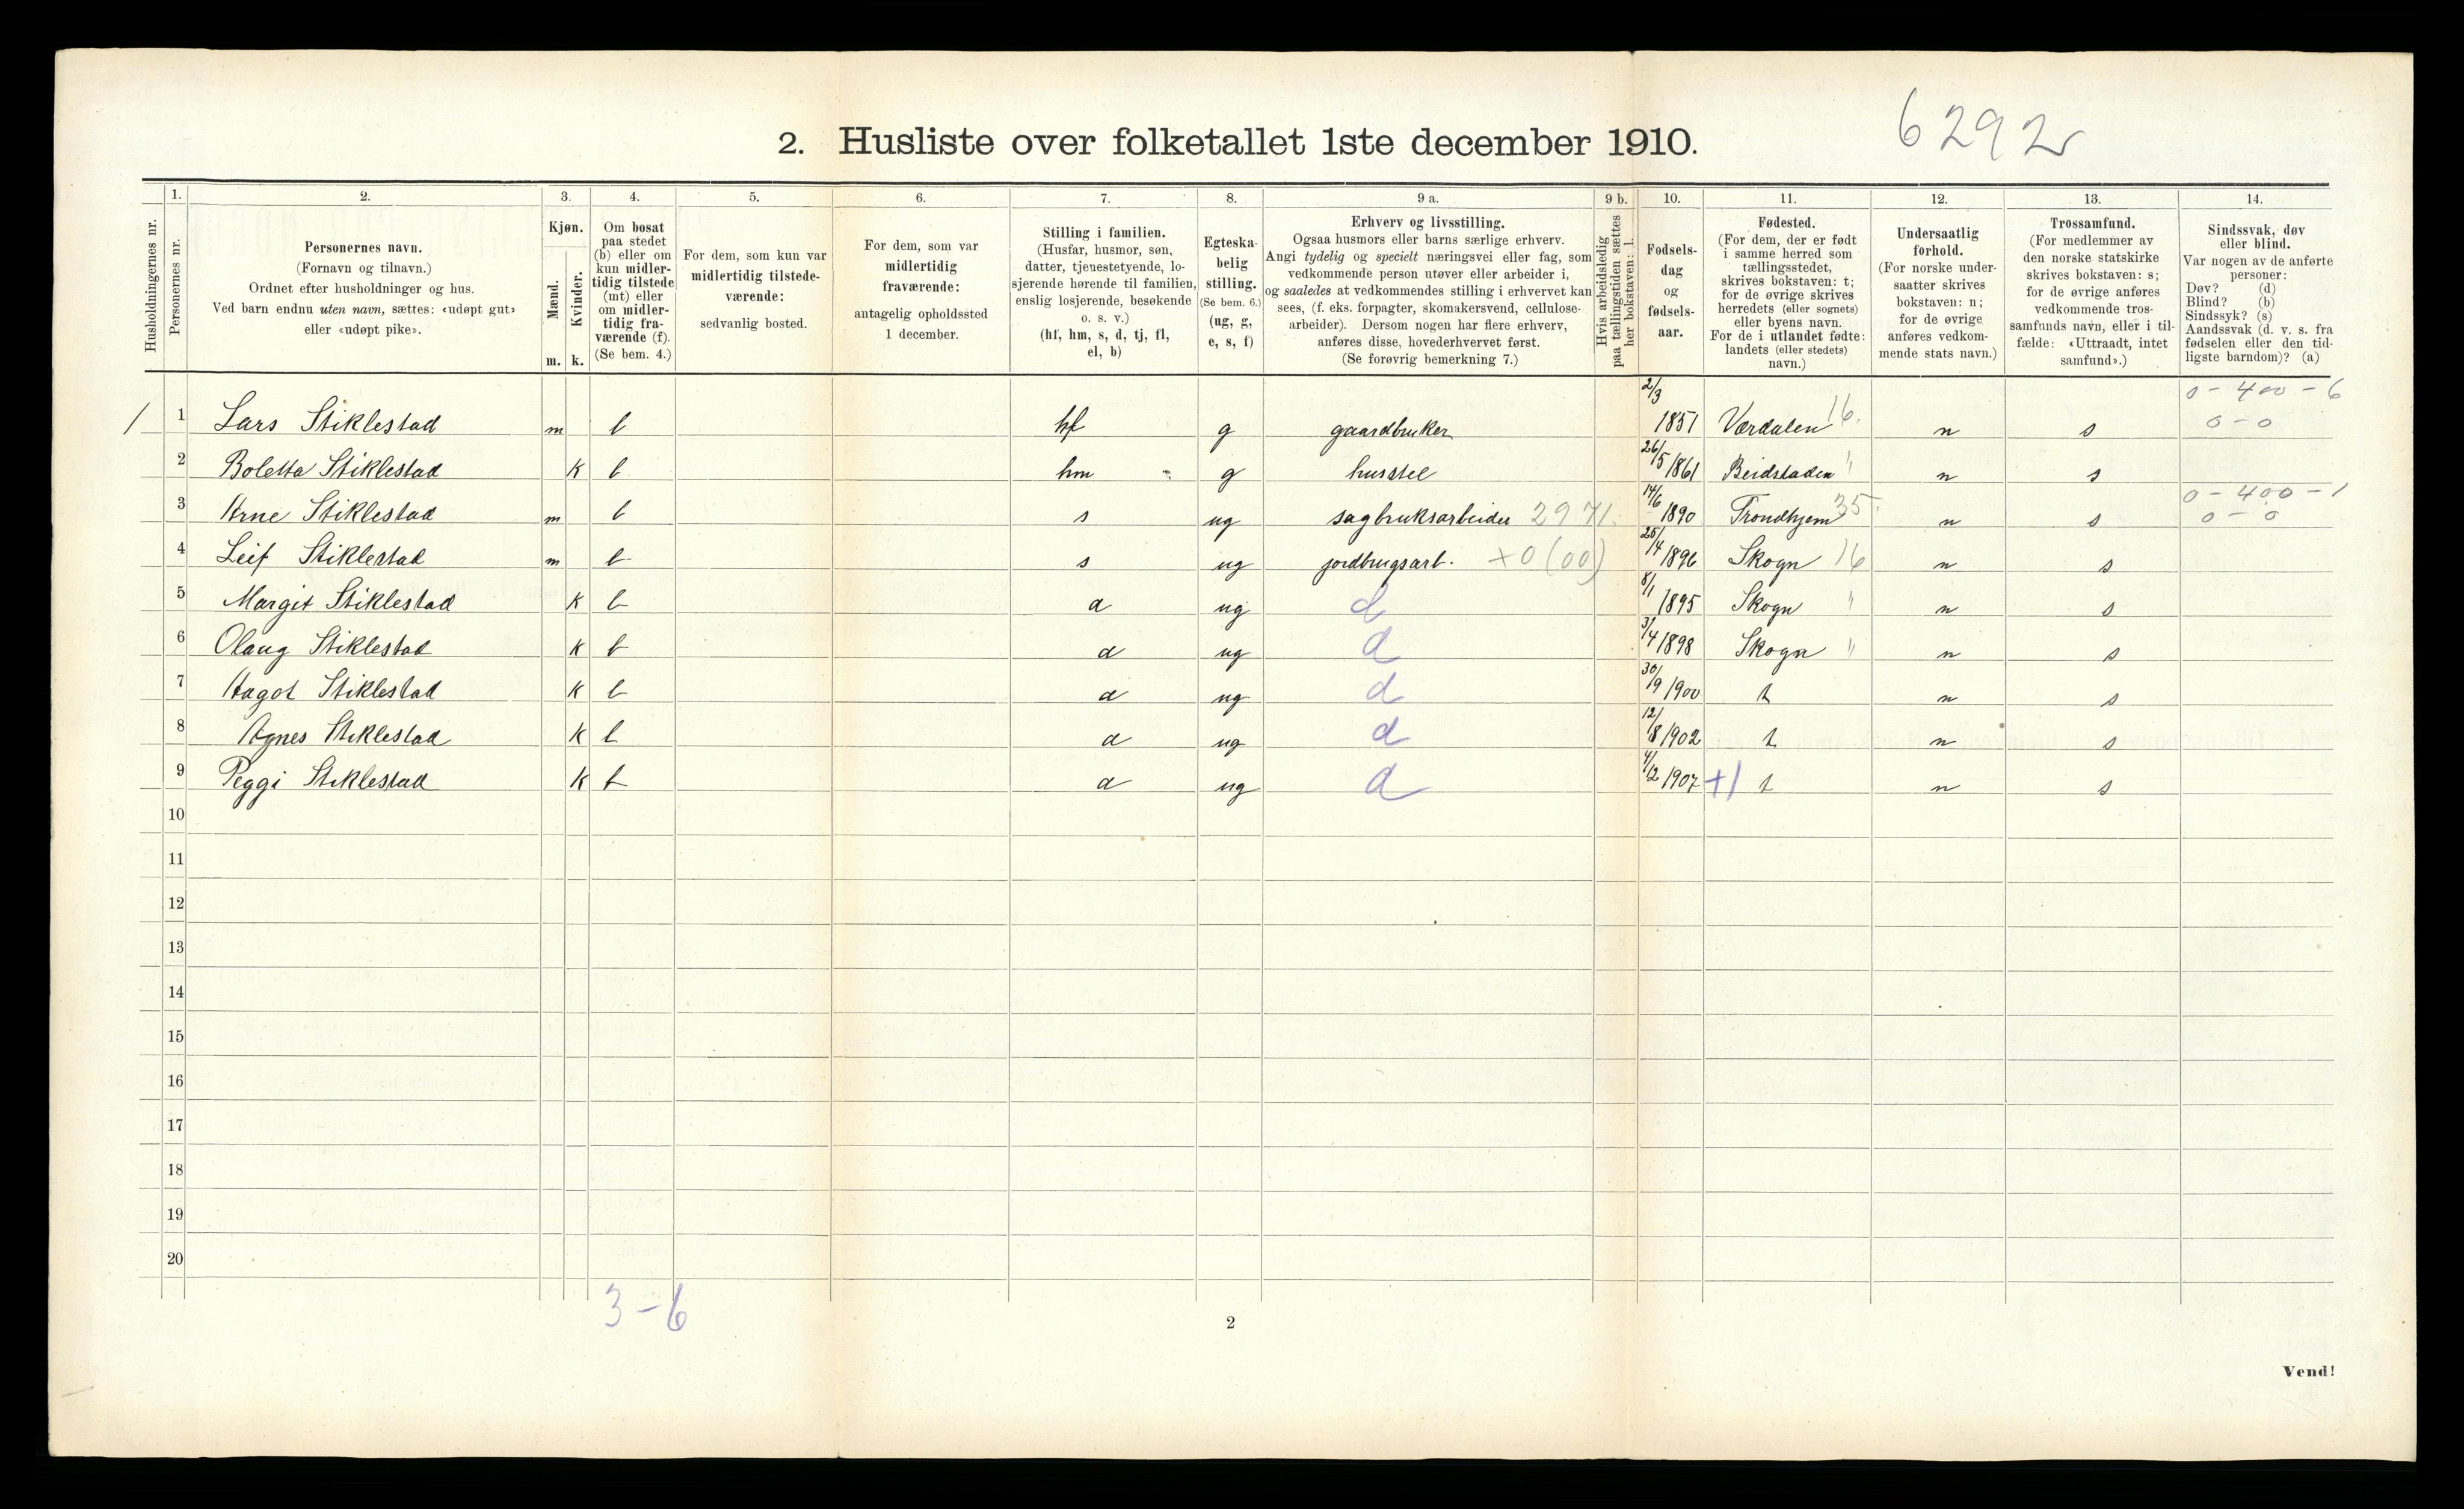 6292
2. Husliste over folketallet 1ste december 1910.
Husholdningernes nr.
1.
Personernes nr.
2.
Personernes navn.
(Fornavn og tilnavn.)
Ordnet efter husholdninger og hus.
Ved barn endnu uten navn, sættes: «udøpt gut»
eller «udøpt pike».
3.
Kjøn.
Mænd.
Kvinder.
m. k.
4.
Om bosat
paa stedet
(b) eller om
kun midler-
tidig tilstede
(mt) eller
om midler-
tidig fra-
værende (f).
(Se bem. 4.)
5.
For dem, som kun var
midlertidig tilstede-
værende:
sedvanlig bosted.
6.
For dem, som var
midlertidig
fraværende:
antagelig opholdssted
1 december.
7.
Stilling i familien.
(Husfar, husmor, søn,
datter, tjenestetyende, lo-
sjerende hørende til familien,
enslig losjerende, besøkende
o. s. v.)
(hf, hm, s, d, tj, fl,
el, b)
8.
Egteska-
belig
stilling.
(Se bem. 6.)
(ug, g,
e, s, f)
9 a.
Erhverv og livsstilling.
Ogsaa husmors eller barns særlige erhverv.
Angi tydelig og specielt næringsvei eller fag, som
vedkommende person utøver eller arbeider i,
og saaledes at vedkommendes stilling i erhvervet kan
sees, (f. eks. forpagter, skomakersvend, cellulose-
arbeider). Dersom nogen har flere erhverv,
anføres disse, hovederhvervet først.
(Se forøvrig bemerkning 7.)
9 b.
Hvis arbeidsledig
paa tællingstiden sættes
her bokstaven: l.
10.
Fødsels-
dag
og
fødsels-
aar.
11.
Fødested.
(For dem, der er født
i samme herred som
tællingsstedet,
skrives bokstaven: t;
for de øvrige skrives
herredets (eller sognets)
eller byens navn.
For de i utlandet fødte:
landets (eller stedets)
navn.)
12.
Undersaatlig
forhold.
(For norske under-
saatter skrives
bokstaven: n;
for de øvrige
anføres vedkom-
mende stats navn.)
13.
Trossamfund.
(For medlemmer av
den norske statskirke
skrives bokstaven: s;
for de øvrige anføres
vedkommende tros-
samfunds navn, eller i til-
fælde: «Uttraadt, intet
samfund».)
14.
Sindssvak, døv
eller blind.
Var nogen av de anførte
personer:
Døv? (d)
Blind? (b)
Sindssyk? (s)
Aandssvak (d. v. s. fra
fødselen eller den tid-
ligste barndom)? (a)
1 1 Lars Stiklestad m b hf g gaardbruker 2/3 1851 Værdalen 16. n s 0 - 400 - 6 0 - 0
2 Boletta Stiklestad K b hm g husstel 26/5 1861 Beidstaden " n s
3 Arne Stiklestad m b s ug sagbruksarbeider 2971. 14/6 1890 Trondhjem 35. n s 0 - 400 - 1 0 - 0
4 Leif Stiklestad m b s ug jordbrugsarb. +0 (00) 25/4 1896 Skogn 16 n s
5 Margit Stiklestad K b d ug d 8/1 1895 Skogn " n s
6 Olaug Stiklestad K b d ug d 3/4 1898 Skogn " n s
7 Aagot Stiklestad K b d ug d 30/9 1900 t n s
8 Agnes Stiklestad K b d ug d 12/8 1902 t n s
9 Peggi Stiklestad K b d ug d 4/12 1907 +1 t n s
10
11
12
13
14
15
16
17
18
19
20
3 - 6
2
Vend!